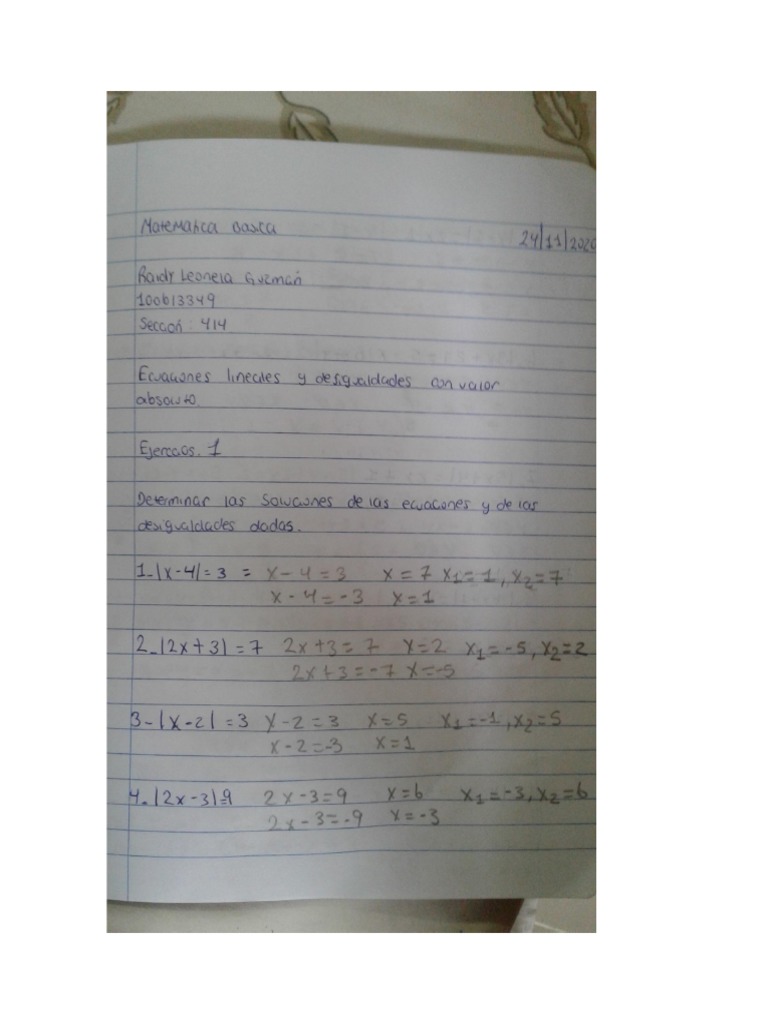 Matematica Basica
24/11/2020
Raidy Leonela Guzmán
100613349
Sección: 414
Ecuaciones lineales y desigualdades con valor
absoluto.
Ejercicios. 1
Determinar las soluciones de las ecuaciones y de las
desigualdades dadas.
1-|x-4|=3 = x-4=3 x=7 x₁=1, x₂=7
x-4=-3 x=1
2-|2x+3|=7 2x+3=7 x=2 x₁=-5, x₂=2
2x+3=-7 x=-5
3-|x-2|=3 x-2=3 x=5 x₁=-1, x₂=5
x-2=-3 x=1
4-|2x-3|=9 2x-3=9 x=6 x₁=-3, x₂=6
2x-3=-9 x=-3